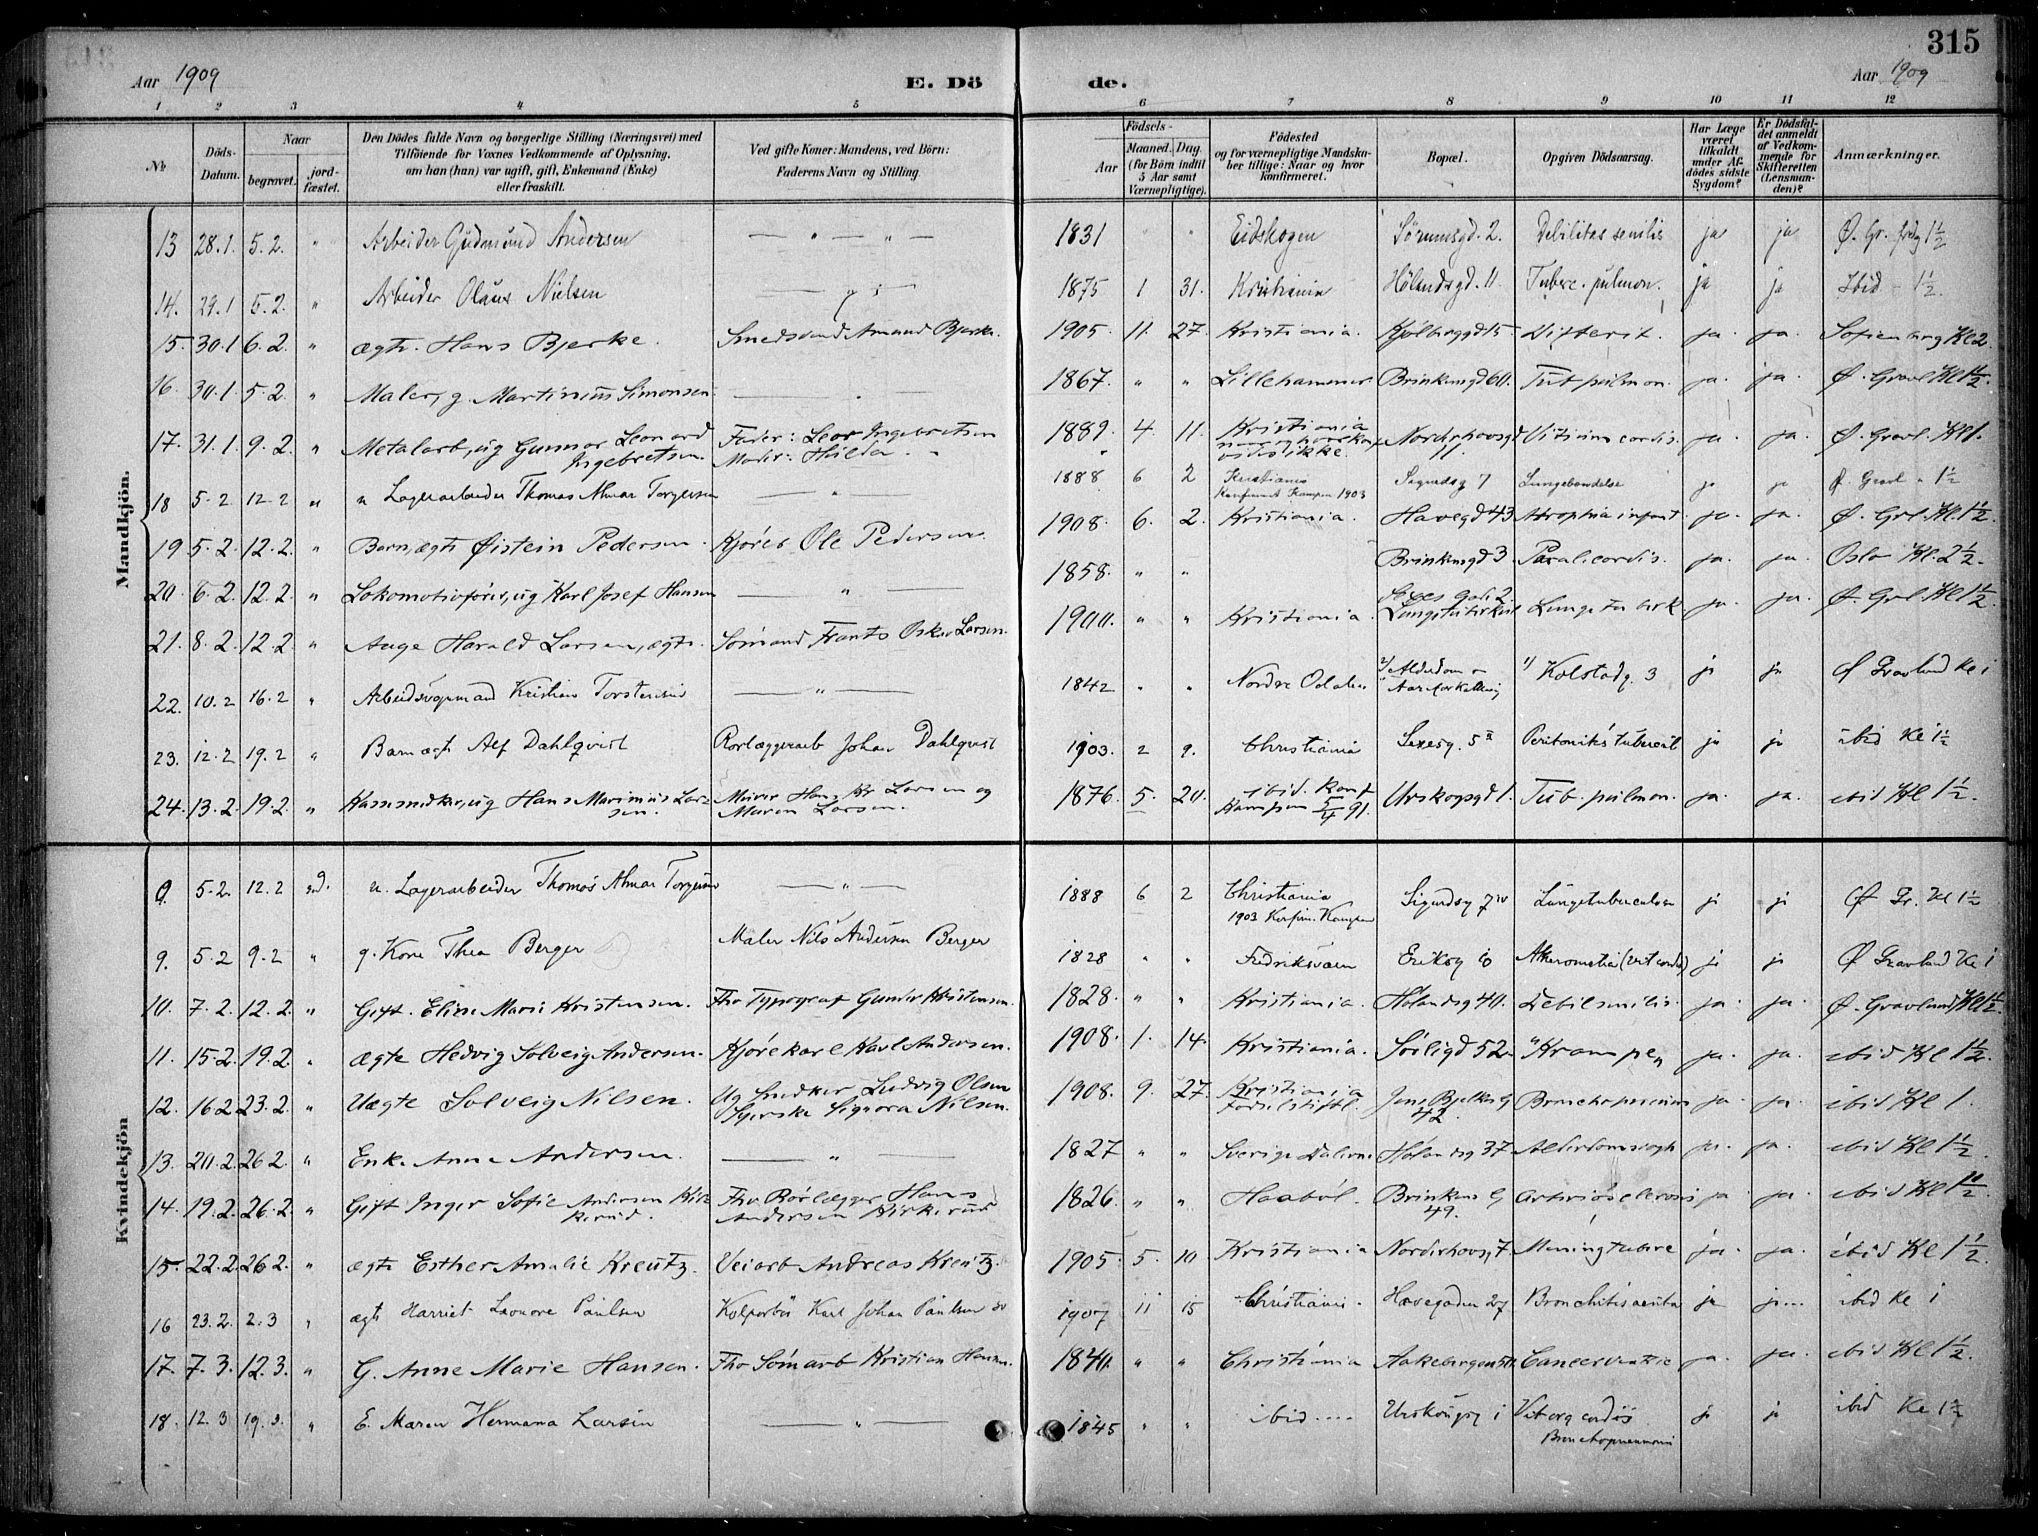 315
Aar 1909 E. Dö de. Aar 1909
1 2 3 4 5 6 7 8 9 10 11 12
№ Döds-Datum. Naar begravet. jord-fæstet. Den Dödes fulde Navn og borgerlige Stilling (Næringsvei) med Tilföiende for Voxnes Vedkommende af Oplysning, om han (hun) var ugift, gift, Enkemand (Enke) eller fraskilt. Ved gifte Koner: Mandens, ved Börn: Faderens Navn og Stilling. Födsels- Aar Maaned. Dag. (for Börn indtil 5 Aar samt Værnepligtige). Födested og for værnepligtige Mandskaber tillige: Naar og hvor konfirmeret. Bopæl. Opgiven Dödsaarsag. Har Læge været tilkaldt under Afdödes sidste Sygdom? Er Dödsfaldet anmeldt af Vedkommende for Skifteretten (Lensmanden)? Anmærkninger.
Mandkjön.
13 28.1. 5.2. " Arbeider Gudmund Andersen — " — " — 1831 " " Eidskogen Sörumsgd. 2. Debilitas senilis ja ja Ø. Gr. 1½
14. 29.1 5.2. " Arbeider Olaus Nielsen 1875 1 31. Kristiania Hølandsgd. 11. Tuberc. pulmon. ja ja Ibid - 1½.
15. 30.1 6.2. " ægte. Hans Bjerke. Smedsvend Amand Bjerke. 1905. 11. 27. Kristiania. Kjölberggd 15 Difterit. ja. ja. Sofienberg Kl 2.
16. 30.1 5.2. " Maler, g. Martinius Simonsen 1867. " " Lillehammer. Brinkensgd 60. Tub pulmon. ja. ja. Ø. Gravl Kl 1½.
17. 31.1 9.2. " Metalarb, ug Gunnar Leonard Ingebretsen. Fader: Leor Ingebretsen Moder: Hulda 1889. 4. 11. Kristiania ikke. Norderhovsgd 11. Vitium cordis. ja. ja. Ø. Gravl. Kl 1.
18 5.2 12.2 " u Lagerarbeider Thomas Almar Torgersen — " — 1888 6 2 Kristiania Konfirmert Kampen 1903 Sigurdsg 7 ja ja Ø. Gravl " 1½
19 5.2. 12.2. " Barn, ægte Øistein Pedersen. Kjöreb Ole Pedersen 1908. 6. 2. Kristiania. Havegd 43 Atrophia infant. ja. ja. Ø. Grl. Kl. 1½.
20. 6.2. 12.2. " Lokomotivförer, ug Karl Josef Hansen — " — 1858. " " Brinkensgd 3. Paral. cordis. ja. ja. Oslo Kl. 2½.
21. 8.2. 12.2. " Aage Harald Larsen, ægte. Sömand Frants Oskar Larsen. 1900. " " Kristiania. Sexes Gade 2. Lunge tuberk. ja. ja. Ø. Grl Kl 1½.
22. 10.2 16.2 " Arbeidsvognmand Kristian Torstensen — " — 1842 " " Nordre Odalen Alderdom - Aareforkalkning Kolstadg. 3 ja ja Ø Gravlund Kl 1
23. 12.2 19.2 " Barn ægte Alf Dahlqvist Rörlæggerarb Johan Dahlqvist 1903. 2 9. Christiania Sexesg. 5 II Peritonitis tubercul ja ja ibid Kl 1½
24. 13.2. 19.2. " ug Hans Marinius Larsen. Murer Hans Kr Larsen og Maren Larsen. 1876. 5. 20. ibid. Konf Kampen 5/4 91. Urskogsgd 1. Tub. pulmon. ja. ja. ibid Kl 1½.
Kvindekjön
0. 5.2. 12.2 u. Lagerarbeider Thomas Almar Torgersen — " — 1888 6 2 Christiania 1903 Konfirm. Kampen Sigurdsg 7 IV Lungetuberculose ja ja Ø Gr. Kl 1½
9. 5.2 9.2 " g. Kone Thea Berger Maler Nils Andersen Berger 1828 " " Fredriksværn Eriksg 10 ja ja Ø Gravlund Kl 1
10. 7.2. 12.2. " Gift. Eline Marie Kristensen. Fhv Typograf Gunder Kristensen. 1828. " " Kristiania. Hølandsg 40. Debil senilis. ja. ja. Ø. Gravlund Kl 1½.
11. 15.2. 19.2. " ægte Hedvig Solveig Andersen. Kjörekarl Karl Andersen. 1908. 1. 14. Kristiania. Sørligd 52. "Krampe" ja. ja. ibid Kl 1½.
12. 16.2 23.2. " Uægte Solveig Nilsen. Ug Snedker Ludvig Olsen Syerske Signora Nilsen. 1908. 9. 27. Kristiania Födselstift. Jens Bjelkes G 42 Bronchopneumoni ja. ja. ibid Kl 1.
13. 20.2. 26.2. " Enke Anne Andersen. — " — 1827 " " Sverige Dalerne Hølandsg 37 Alderdomssvagh ja. ja. ibid Kl 1½.
14. 19.2. 26.2. " Gift Inger Sofie Andersen Kirkerud. Fhv Rörlægger Hans Andersen Kirkerud 1826. " " Haaböl. Brinkens G 49. Arteriosclerosis ja. ja. ibid Kl 1½.
15. 22.2. 26.2. " ægte Esther Amalie Kreutz. Veiarb Andreas Kreutz. 1905. 5. 10 Kristiania Norderhovsg. 7. Mening tuberc ja. ja. ibid Kl 1½.
16 23.2. 2.3 " ægte Harriet Leonore Paulsen Kolportör Karl Johan Paulsen 1907 11 15 Christiania. Havegaden 27 Bronchitis acuta ja ja ibid Kl 1
17. 7.3. 12.3. " G. Anne Marie Hansen. Fhv Sömarb Kristian Hansen. 1840. " " Christiania Aakebergveien Cancer ventric ja. ja. ibid Kl 1½.
18. 12.3 19.3. " E. Maren Hermana Larsen — " — 1845 " " ibid .... Urskougsg 1 Vit org cordis Bronchopneumoni ja ja ibid Kl 1½